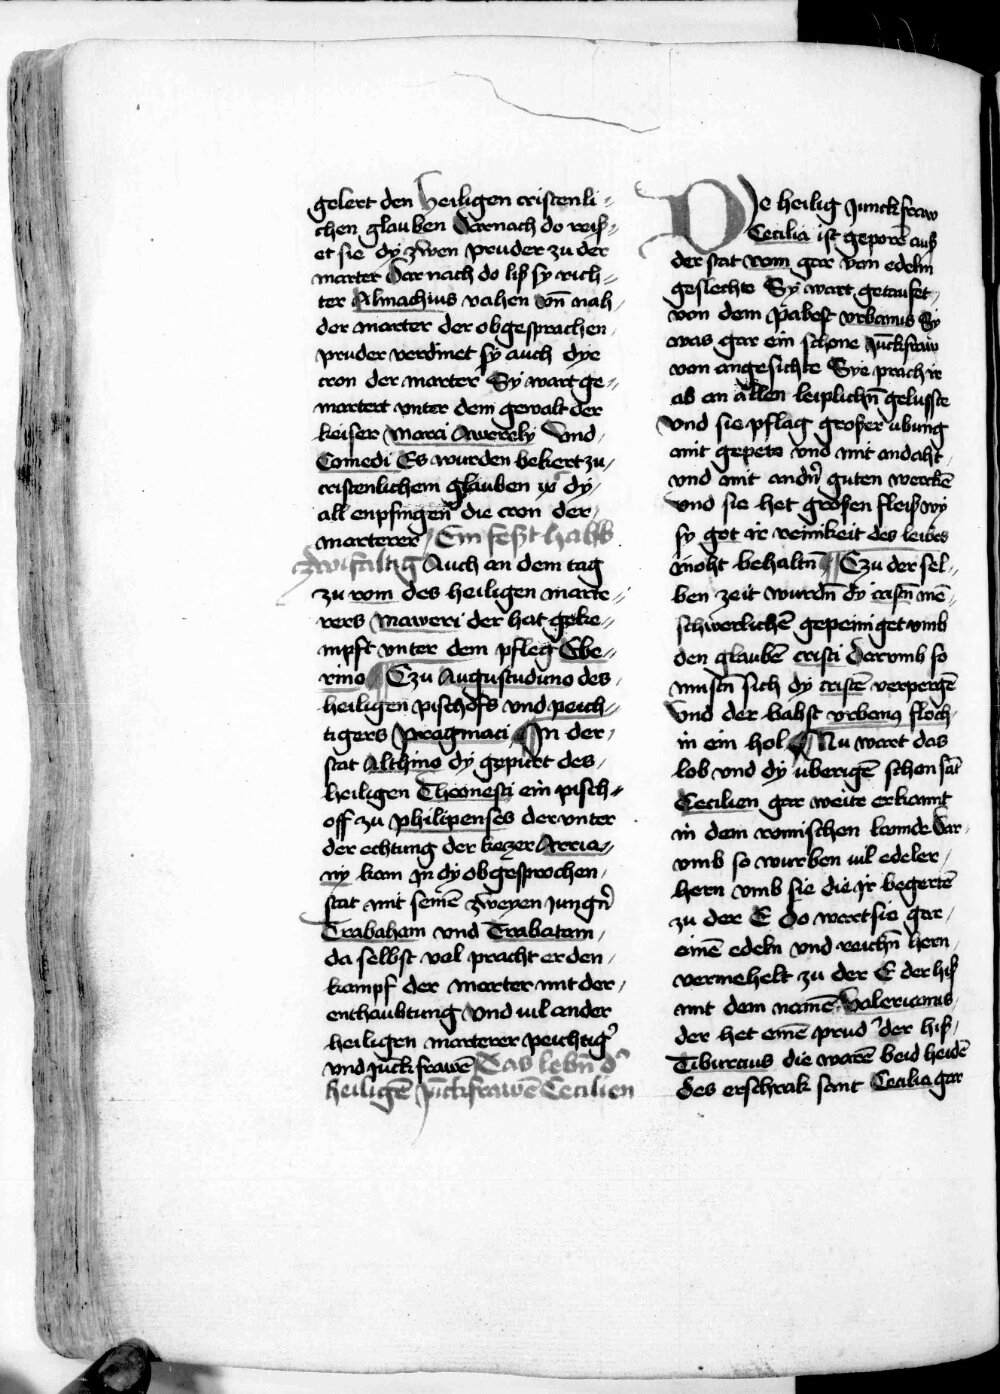 gelert den heiligen cristenli⸗
chen glauben Darnach do reiß⸗
et sie dy zwen pruder zu der
marter Dar nach do liß sy rich⸗
ter Almachius vahen vn̄ nah
der marter der obgesprachen
pruder verdinet sy auch dye
cron der marter Sy wart ge⸗
martert vnter dem gewalt der
keiser Marci Awrely Vnd
Comedi Es wurden bekert zu
cristenlichem glauben dy
all enpfingen die cron der
marterer Ein fest halb
zwifaltig Auch an dem tag
zu rom des heiligen marte⸗
rers Maweri der hat geke⸗
mpft vnter dem pfleg Ebe⸗
rino Czu Augustuduno des
heiligen pischofs vnd peich⸗
tigers Pragmaci In der
stat Althino dy gepurt des
heiligen Theonesti ein pisch⸗
off zu philipenses der vnter
der echtung der keczer Arria⸗
ny kom in dy obgesprochen
stat mit seinē zweyen jungn̄
Trabaham vnd Trabatam
da selbst vol pracht er den
kampf der marter mit der
enthaubtung vnd vil ander
heiligen marterer peichtig̉
vnd jūckfrawē Das lebn̄ d̉
heiligē jūckfrawē Cecilien
De heilig junckfraw
Cecilia ist geporē auß
der stat rom gar von edelm
geslechte Sy wart getaufet
von dem pabest vrbanus Sy
was gar ein schone jūckfraw
von angesichte Sye prach ir
ab an allen leiplichn̄ geluste
vnd sie pflag großer ubung
mit gepete vnd mit andaht
vnd mit andn̄ guten wercken
vnd sie het großen fleiß wy
sy got ir reinikeit des leibes
moht behaltn̄ Czu der sel⸗
ben zeit wurdn̄ dy cristn̄ mē⸗
schwerlichē gepeiniget vmb
den glaubē cristi Dorvmb so
mustn̄ sich dy cristē verpergē
Vnd der babst vrbanꝯ floch
in ein hol Nu wart das
lob vnd dy uberigē schon sāt
Cecilien gar weite erkannt
in dem romischen lannde Dar⸗
vmb so wurben vil edeler
hern vmb sie die ir begertē
zu der E Do wart sie gar
einē edeln vnd reichn̄ hern
vermehelt zu der E der hiß
mit dem namē Valerianus
der het einē prud̉ der hiß
Tiburcius die warē beid heidē
des erschrak sant Cecilia gar